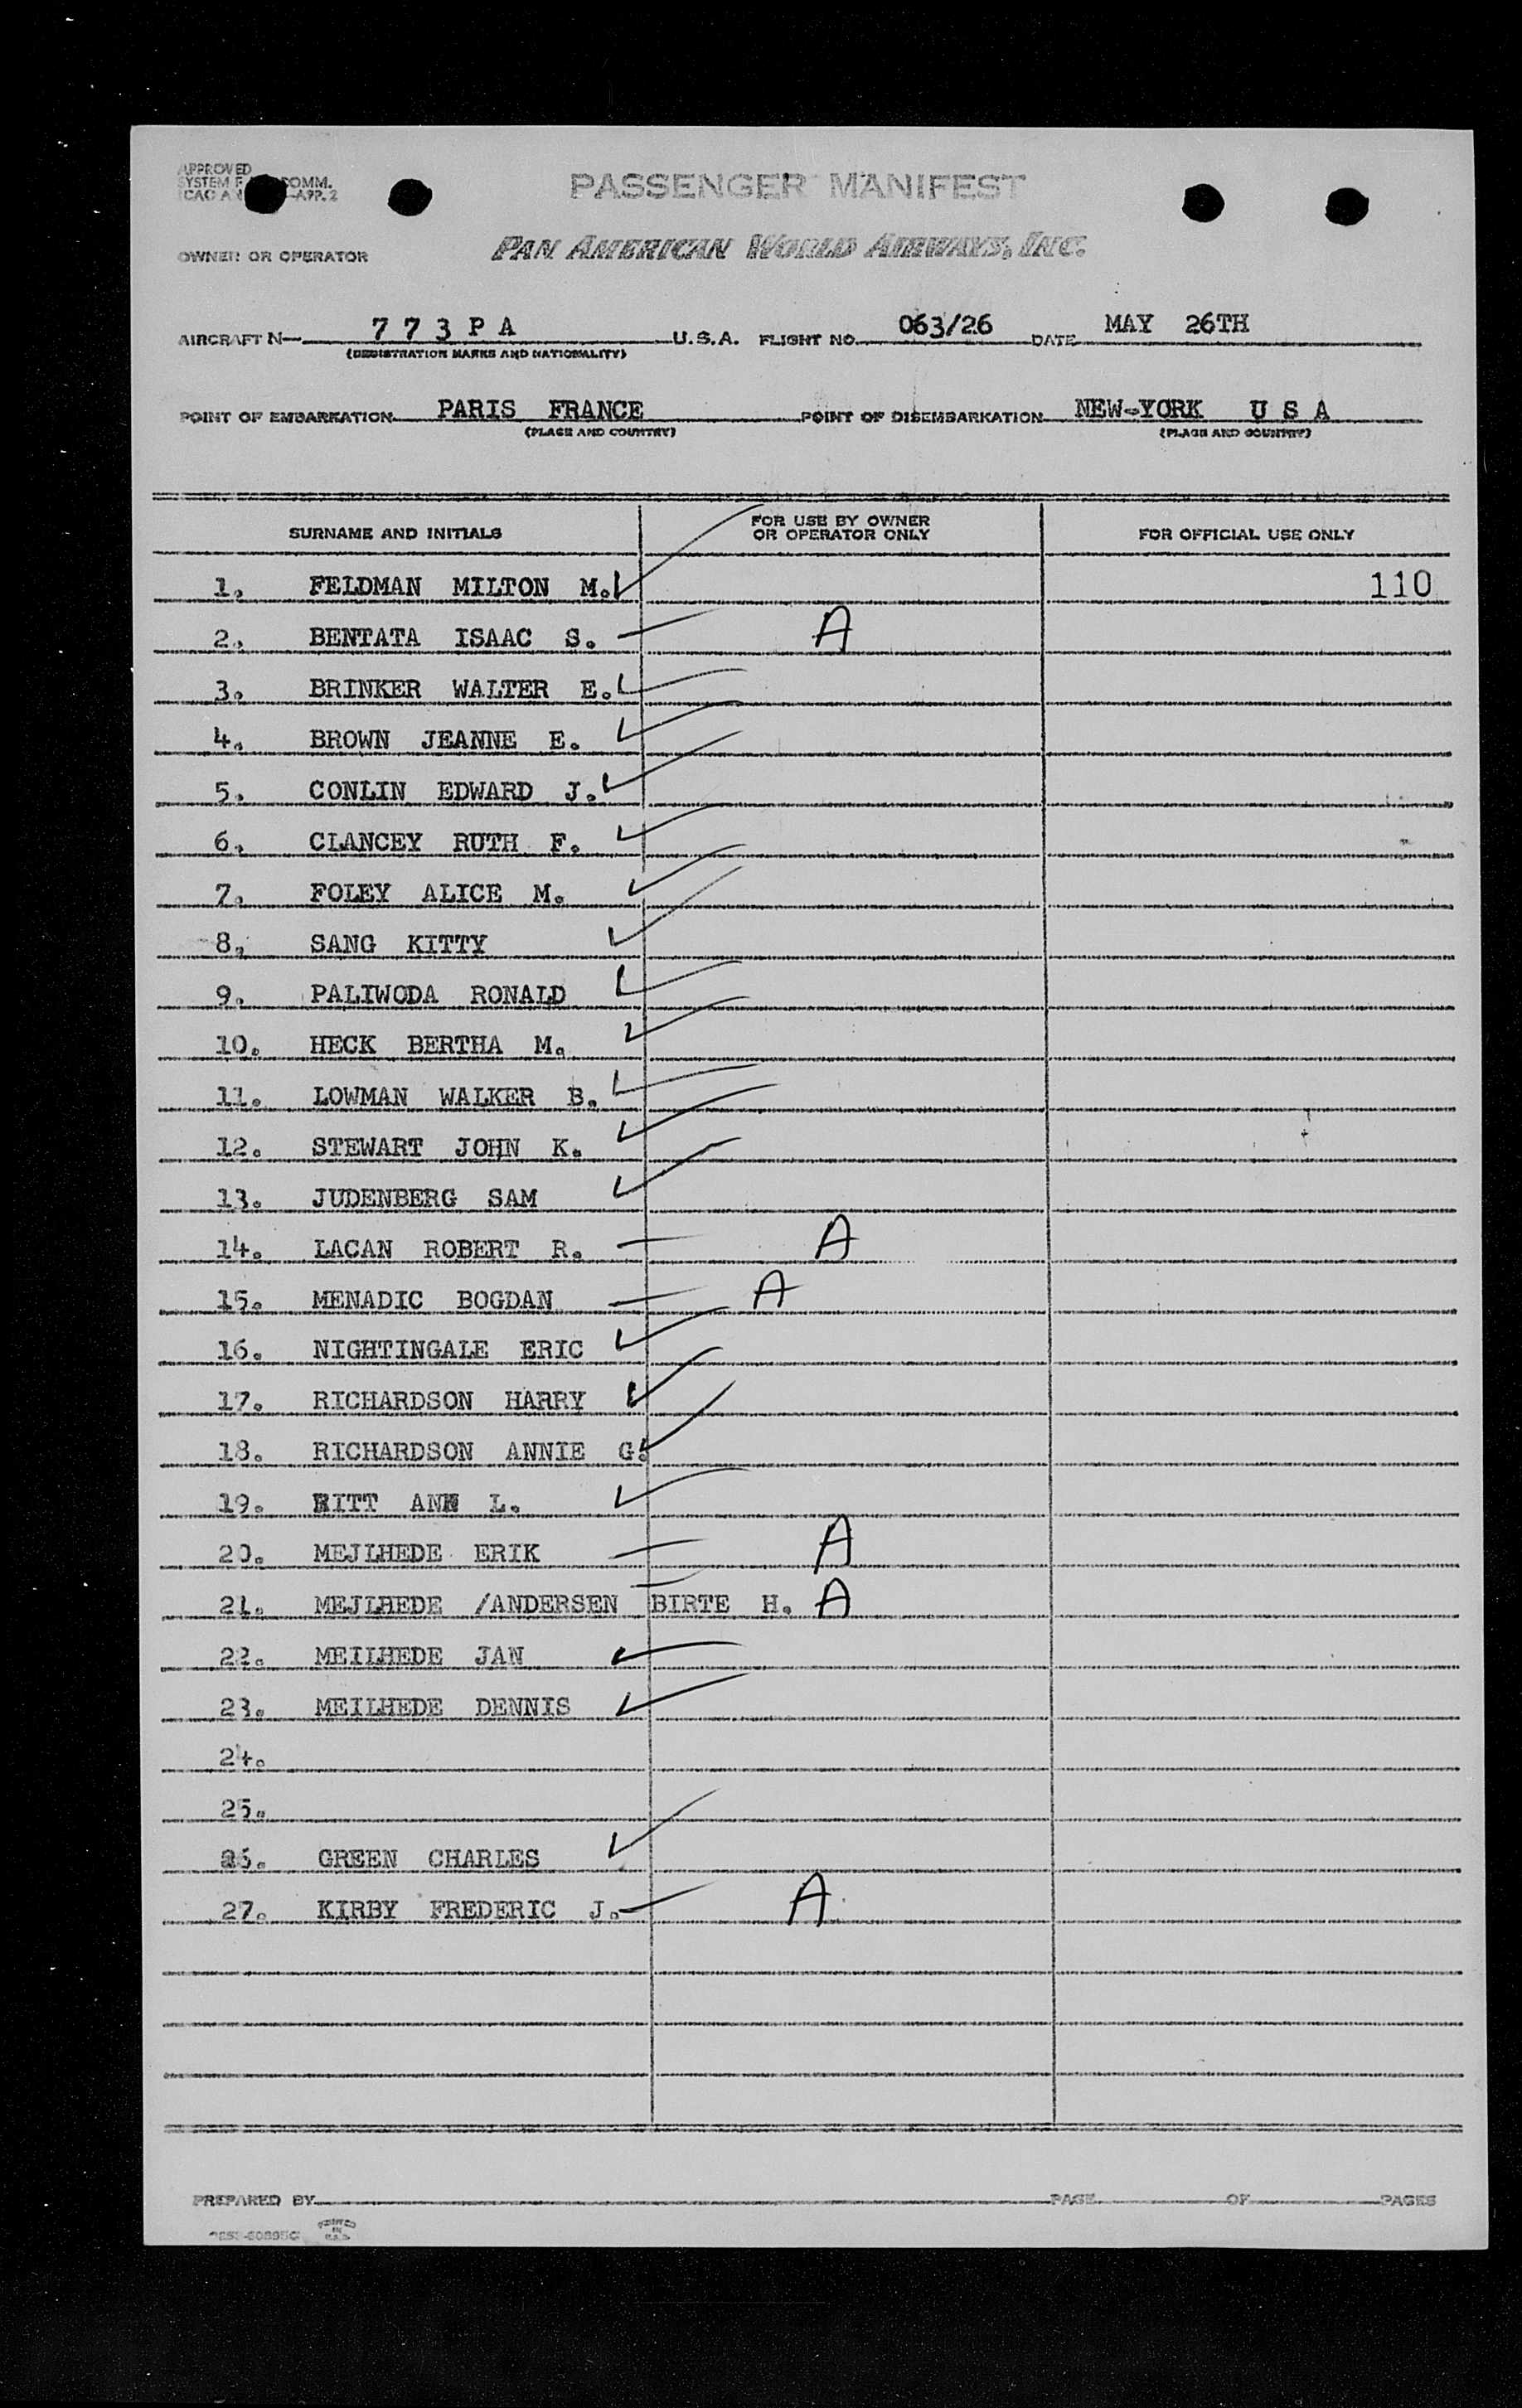 APPROVED
SYSTEM COMM.
ICAO APP. 2
PASSENGER MANIFEST
OWNER OR OPERATOR PAN AMERICAN WORLD AIRWAYS, INC.
AIRCRAFT N— 7 7 3 P A U.S.A. FLIGHT NO. 063/26 DATE MAY 26TH
(REGISTRATION MARKS AND NATIONALITY)
POINT OF EMBARKATION PARIS FRANCE POINT OF DISEMBARKATION NEW-YORK U S A
(PLACE AND COUNTRY) (PLACE AND COUNTRY)
SURNAME AND INITIALS FOR USE BY OWNER OR OPERATOR ONLY FOR OFFICIAL USE ONLY
1. FELDMAN MILTON M. 110
2. BENTATA ISAAC S. A
3. BRINKER WALTER E.
4. BROWN JEANNE E.
5. CONLIN EDWARD J.
6. CLANCEY RUTH F.
7. FOLEY ALICE M.
8. SANG KITTY
9. PALIWODA RONALD
10. HECK BERTHA M.
11. LOWMAN WALKER B.
12. STEWART JOHN K.
13. JUDENBERG SAM
14. LACAN ROBERT R. A
15. MENADIC BOGDAN A
16. NIGHTINGALE ERIC
17. RICHARDSON HARRY
18. RICHARDSON ANNIE G.
19. RITT ANN L.
20. MEJLHEDE ERIK A
21. MEJLHEDE /ANDERSEN BIRTE H. A
22. MEILHEDE JAN
23. MEILHEDE DENNIS
24.
25.
26. GREEN CHARLES
27. KIRBY FREDERIC J. A
PREPARED BY PAGE OF PAGES
PRINTED IN U.S.A.